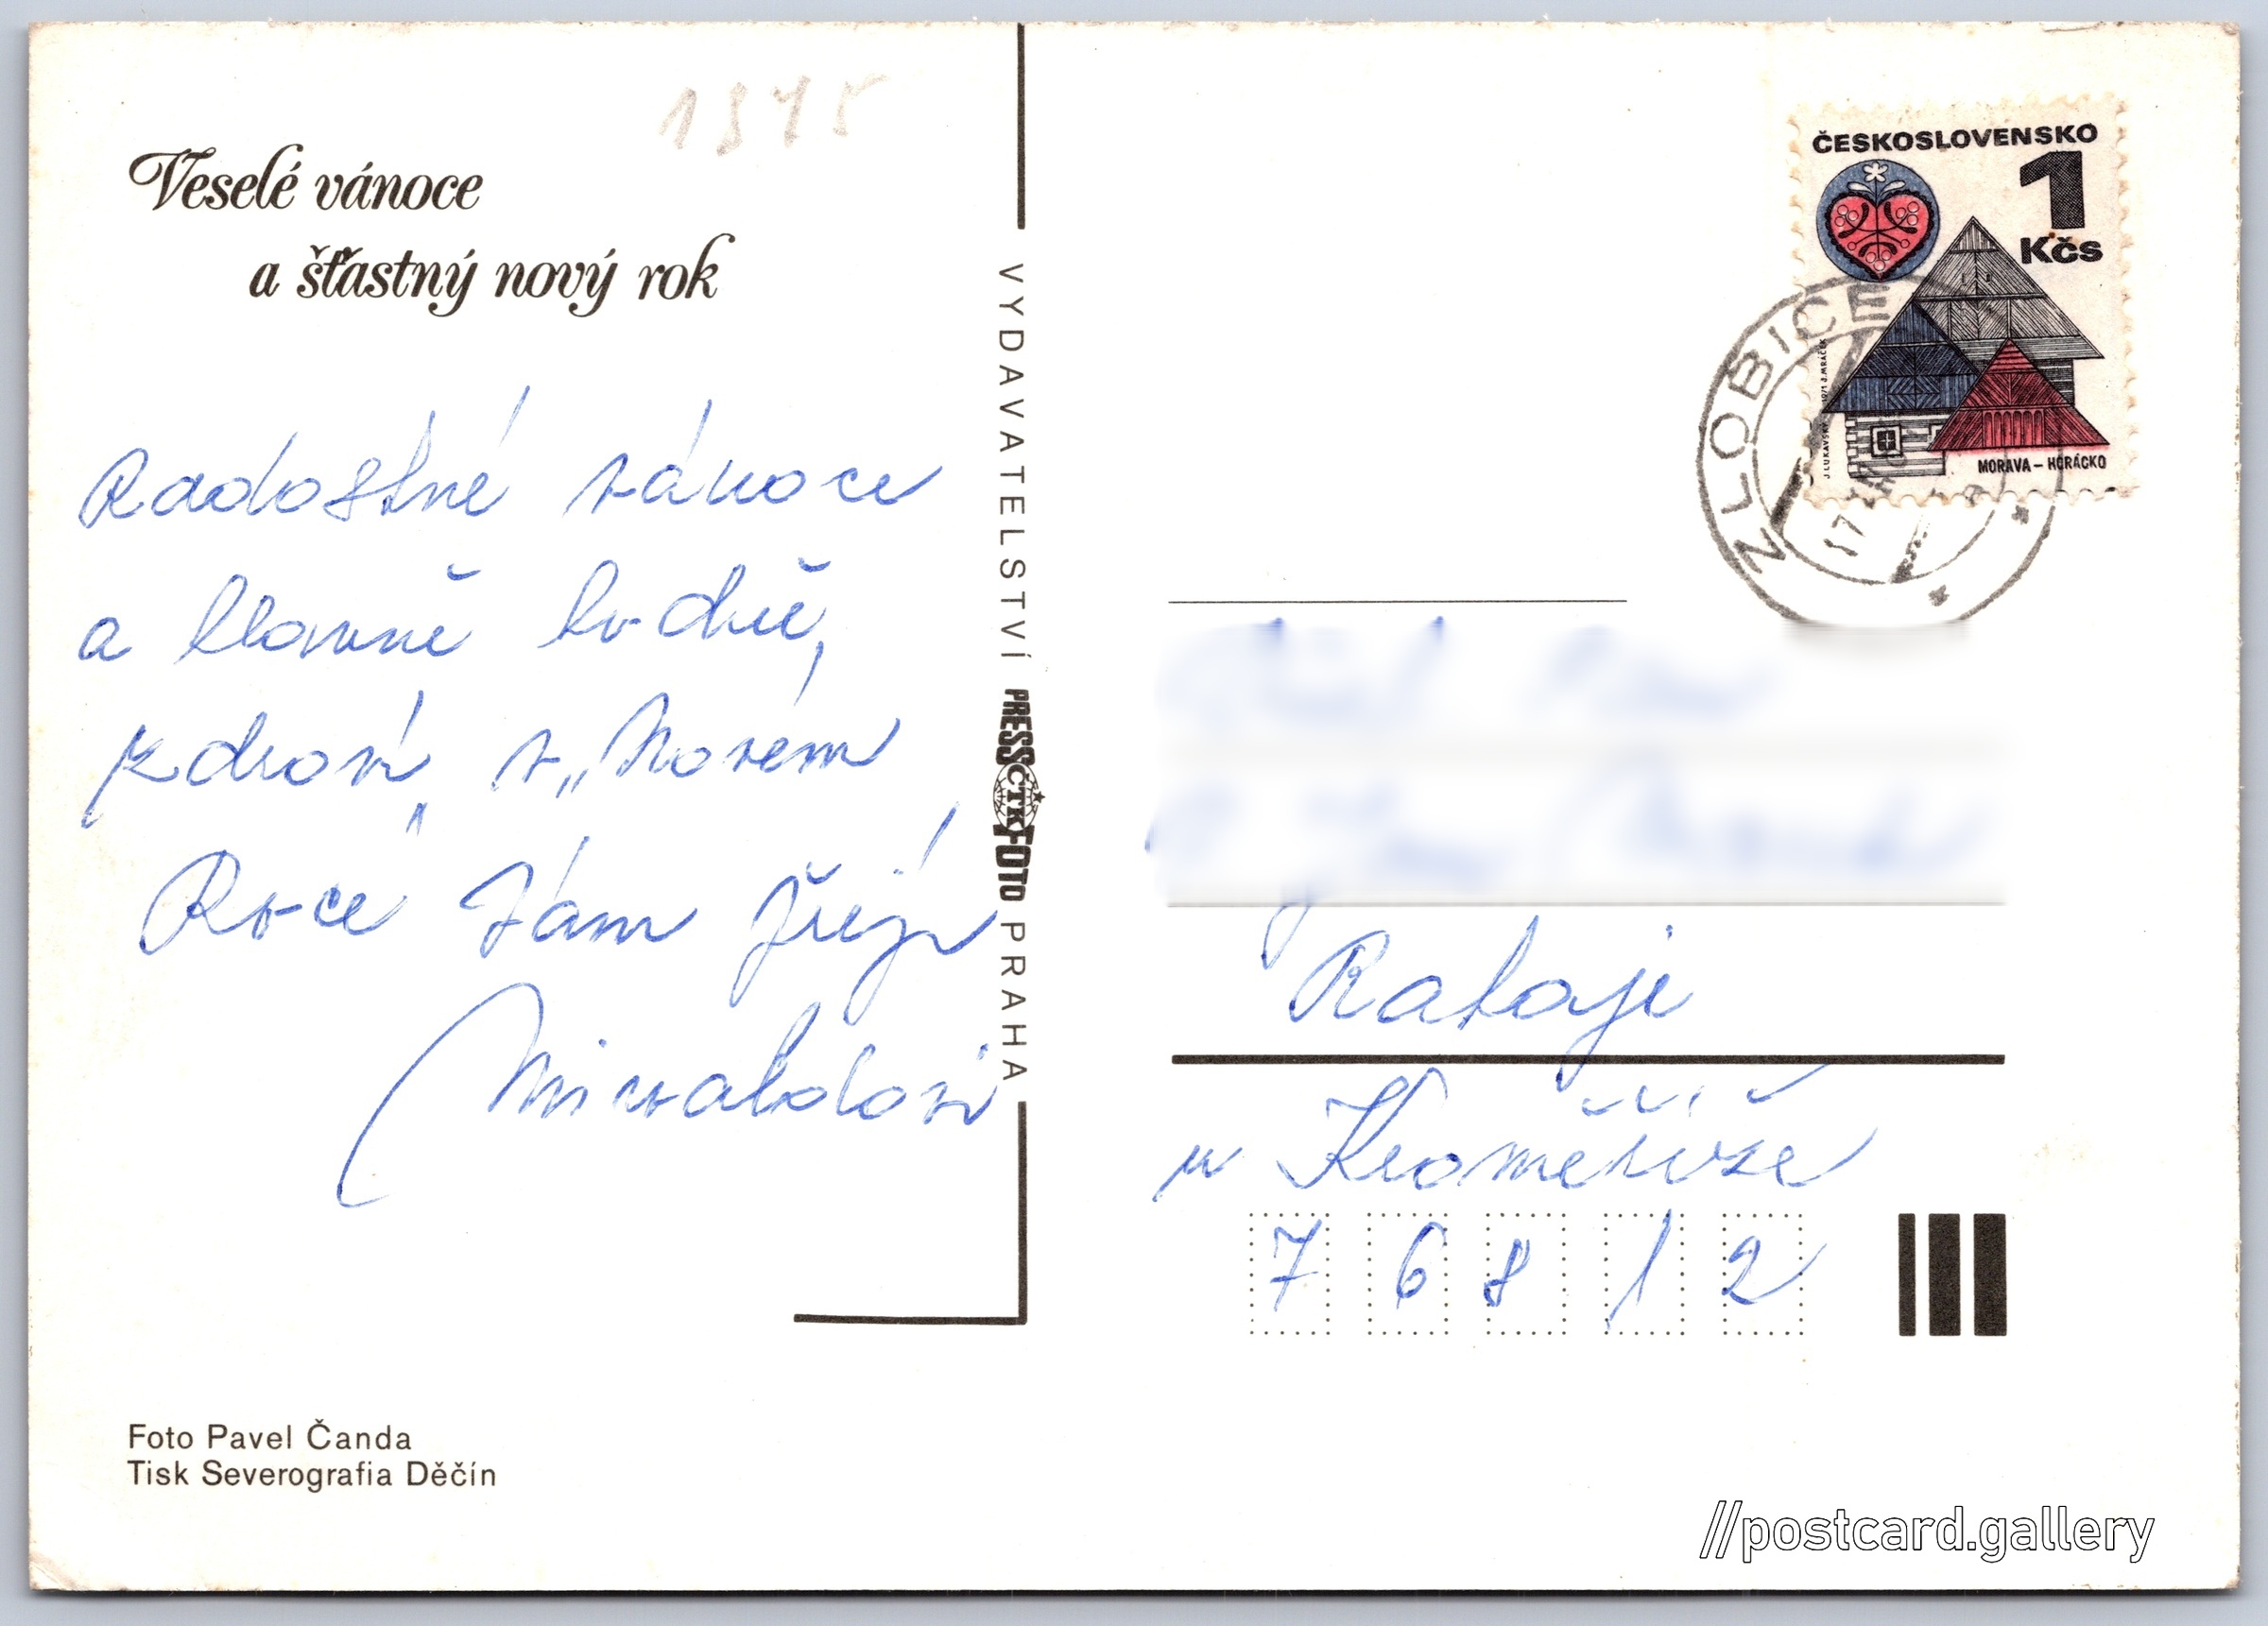 1975
Veselé vánoce
a šťastný nový rok
Radostné vánoce
a hlavně hodně,
zdraví v „Novém
Roce" Vám přejí
VYDAVATELSTVÍ PRESSFOTO PRAHA
ČTK
Foto Pavel Čanda
Tisk Severografia Děčín
ČESKOSLOVENSKO
1
Kčs
J. LUKAVSKÝ 1971 J. MRÁČEK
MORAVA – HORÁCKO
ZLOBICE
17
Rataje
u Kroměříže
7 6 8 1 2
//postcard.gallery